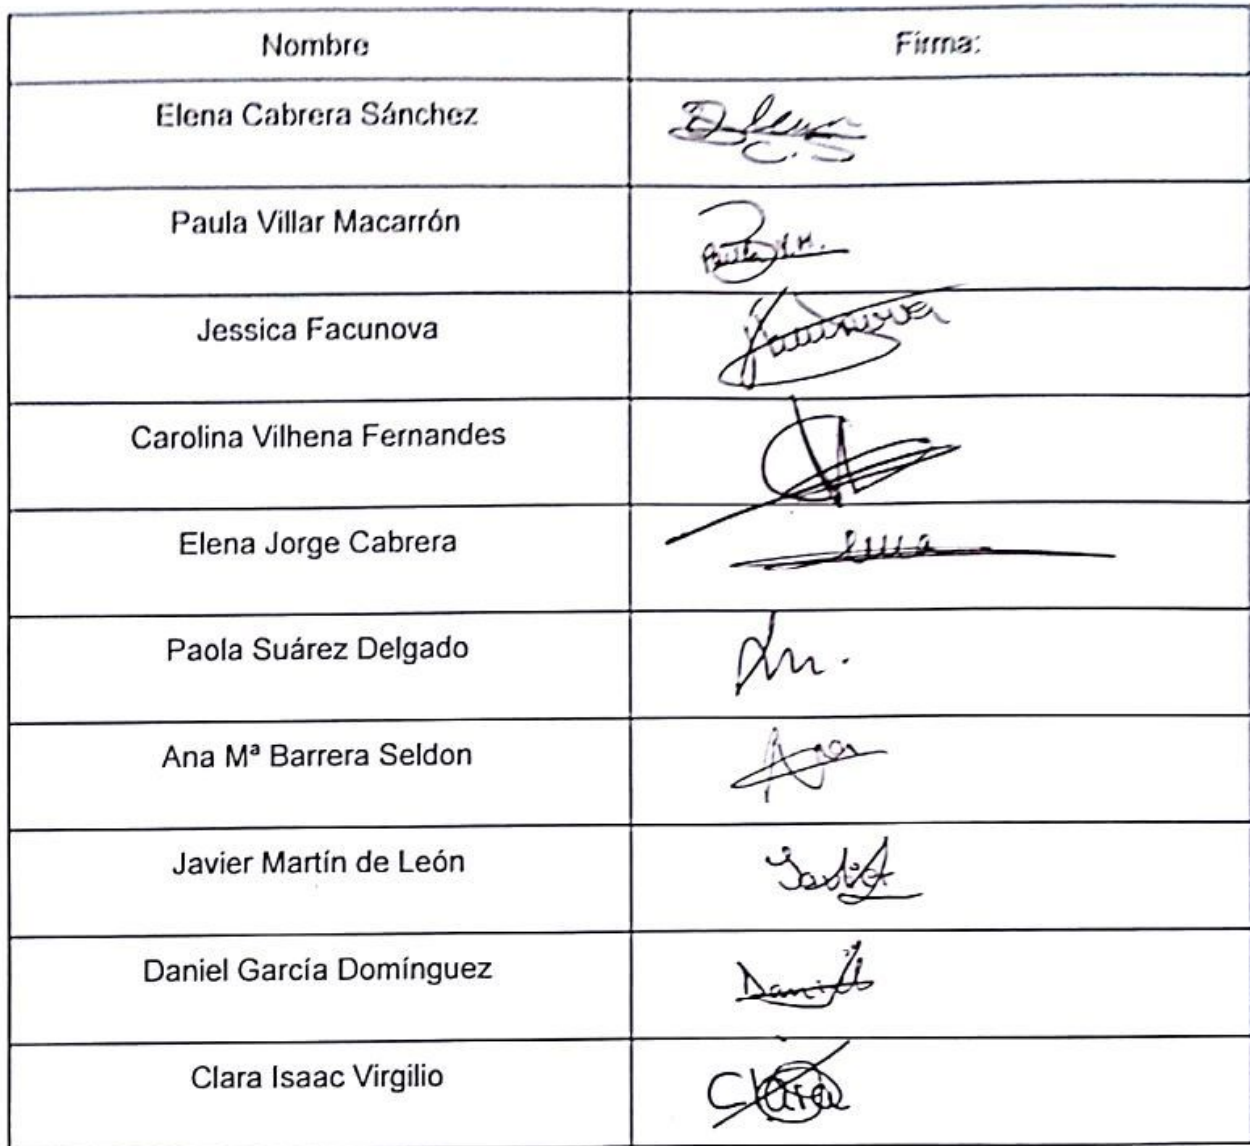 Nombre Firma:
Elena Cabrera Sánchez Elena
C.S
Paula Villar Macarrón Paula V.M.
Jessica Facunova
Carolina Vilhena Fernandes
Elena Jorge Cabrera
Paola Suárez Delgado
Ana Mª Barrera Seldon
Javier Martín de León Javier
Daniel García Domínguez Daniel
Clara Isaac Virgilio Clara